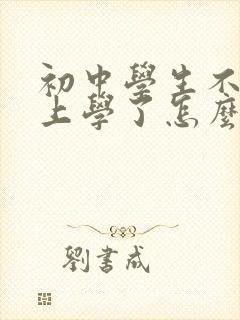 初中學生不
上學了怎麼
劉書成